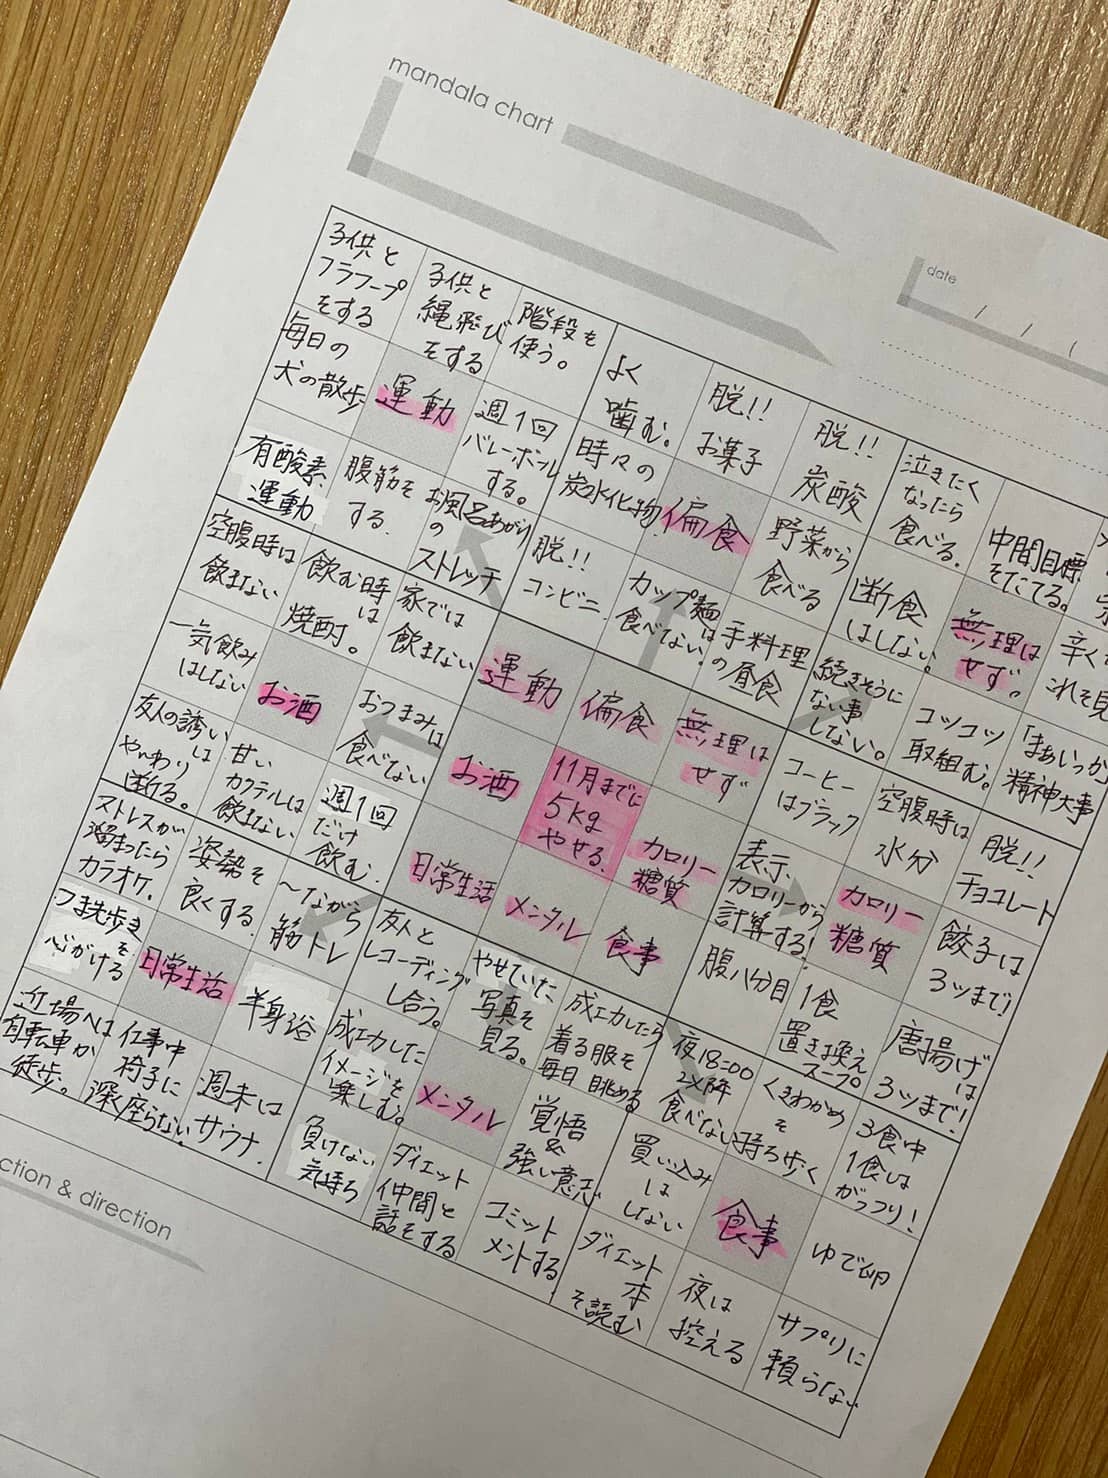 mandala chart
date / / (
子供と
フラフープ
をする
子供と
縄飛び
をする
階段を
使う。
毎日の
犬の散歩
運動
週1回
バレーボール
する。
有酸素
運動
腹筋を
する。
お風呂あがり
の
ストレッチ
よく
噛む。
脱!!
お菓子
脱!!
炭酸
時々の
炭水化物
偏食
野菜から
食べる
脱!!
コンビニ
カップ麺は
食べない。
手料理
の昼食
泣きたく
なったら
食べる。
中間目標
をたてる。
断食
はしない。
無理は
せず。
辛く
これを見
続きそうに
ない事
しない。
コツコツ
取組む。
「まあいっか
精神大事
空腹時は
飲まない
飲む時
は
焼酎。
家では
飲まない
一気飲み
はしない
お酒
おつまみは
食べない
友人の誘い
は
やんわり
断る。
甘い
カクテルは
飲まない
週1回
だけ
飲む。
運動
偏食
無理は
せず
お酒
11月までに
5kg
やせる。
カロリー
糖質
日常生活
メンタル
食事
コーヒー
はブラック
空腹時は
水分
脱!!
チョコレート
表示、
カロリーから
計算する!
カロリー
糖質
餃子は
3ツまで!
腹八分目
1食
置き換え
スープ
唐揚げ
は
3ツまで!
ストレスが
溜まったら
カラオケ。
姿勢を
良くする。
〜ながら
筋トレ
つま先歩き
を
心がける
日常生活
半身浴
近場へは
自転車か
徒歩。
仕事中
椅子に
深座らない
週末は
サウナ.
友人と
レコーディング
し合う。
やせていた
写真を
見る。
成功したら
着る服を
毎日眺める
成功した
イメージを
楽しむ。
メンタル
覚悟
&
強い意志
負けない
気持ち
ダイエット
仲間と
話をする
コミット
メントする
夜18:00
以降
食べない
くきわかめ
を
持ち歩く
3食中
1食は
がっつり!
買い込み
は
しない
食事
ゆで卵
ダイエット
本
を読む
夜は
控える
サプリに
頼らない
ction & direction